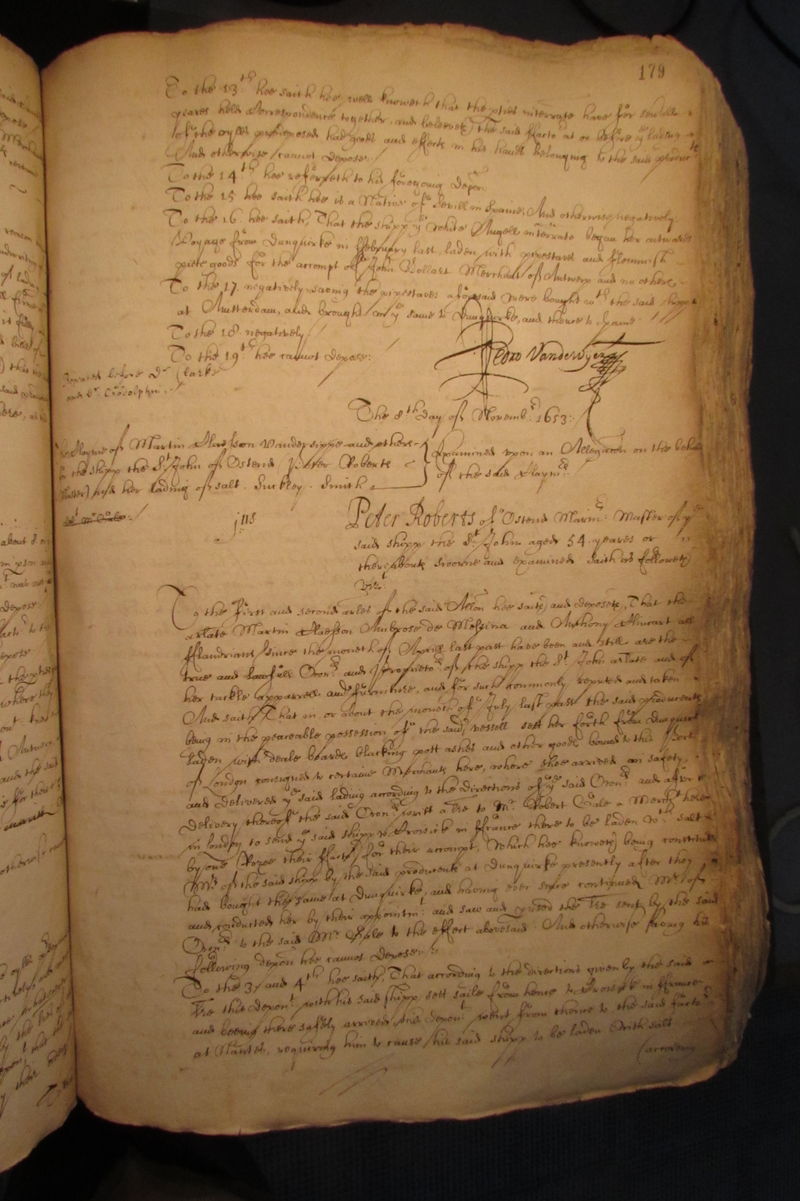 179
To the 13th hee saith hee well knoweth that the pties interrate have for severall
yeares held Correspondence together, and beleeveth the said factor at or before ye lading
of the oyles predeposed had goods and effects in his hands belonging to the said producent
And otherwise cannot depose.
To the 14th hee referreth to his foregoeing depon.
To the 15 hee saith hee is a Native of Sevill in Spaine, And otherwise negatively.
To the 16. hee saith, That the shipp ye White Angell interrate began her outwards
Voyage from Dunquirke in ffebruary last, laden with pipestaves and fflemish
piece goods for the accompt of John Bollart Merchant of Antwerp and no others.
To the 17. negatively, saving the pipestaves aforesaid were bought wth the said shipp
at Amsterdam, and brought in ye same to Dunquirke, and thence to Spaine.
To the 18. negatively
To the 19th hee cannot depose.
Repeated before Dr Clarke
and Dr Godolphin.
Pedro Vanderwyer
The 8th day of Novembr. 1653.
The Clayme of Martin Claesson Vandersippe and others
for the shipp the St. John of Ostend, Peter Roberts
Master, and her lading of salt. Suckley. Smith
Examined upon an Allegacon on the behalfe
of the said Clayme.
jus
Peter Roberts of Ostend Marinr. Master of ye
said shipp the St. John aged 54. yeares or
thereabouts sworne and examined saith as followeth
vizt.
To the first and second arles of the said Allon hee saith and deposeth, That the
arlate Martin Claesson Ambrose de Messina and Anthony Clincart all
fflandrians since the moneth of Aprill last past have been and still are the
true and lawfull Owners and Proprietors of the shipp the St. John arlate and of
her tackle apparrell and furniture, and for such commonly reputed and taken
And saith That in or about the moneth of July last past the said producents
being in the peaceable possession of the said vessell sett her forth from Dunquirke
laden with deale boards blacking pott ashes and other goods bound to this Port
of London consigned to certaine Merchants here, where shee arrived in safety
and delivered ye said lading according to the directions of ye said Owners and after ye
delivery thereof the said Owners writt a tre to Mr. Robert Gale a Mercht here
in London to send ye said shipp to Crowsick in ffrance there to be laden wth salt
by one their ffactor for their accompt, Which hee knoweth being constituted
Mr. of the said shipp by the said producents at Dunquirke presently after they
had bought the same at Dunquirke, and having ever since contynued Mr. of
and conducted her by their appointmt. and saw and the tre sent by the said
Owners to the said Mr. Gale to the effect abovesaid. And otherwise saving his
following depon hee cannot depose.
To the 3. and 4th hee saith, That according to the directions given by the said
tre this deponent with his said shipp, sett saile from hence to Crowsick in ffrance
and beeing there safely arrived this deponent went from thence to the said factor
at Nantes, requiring him to cause his said shipp to be laden with salt
(according